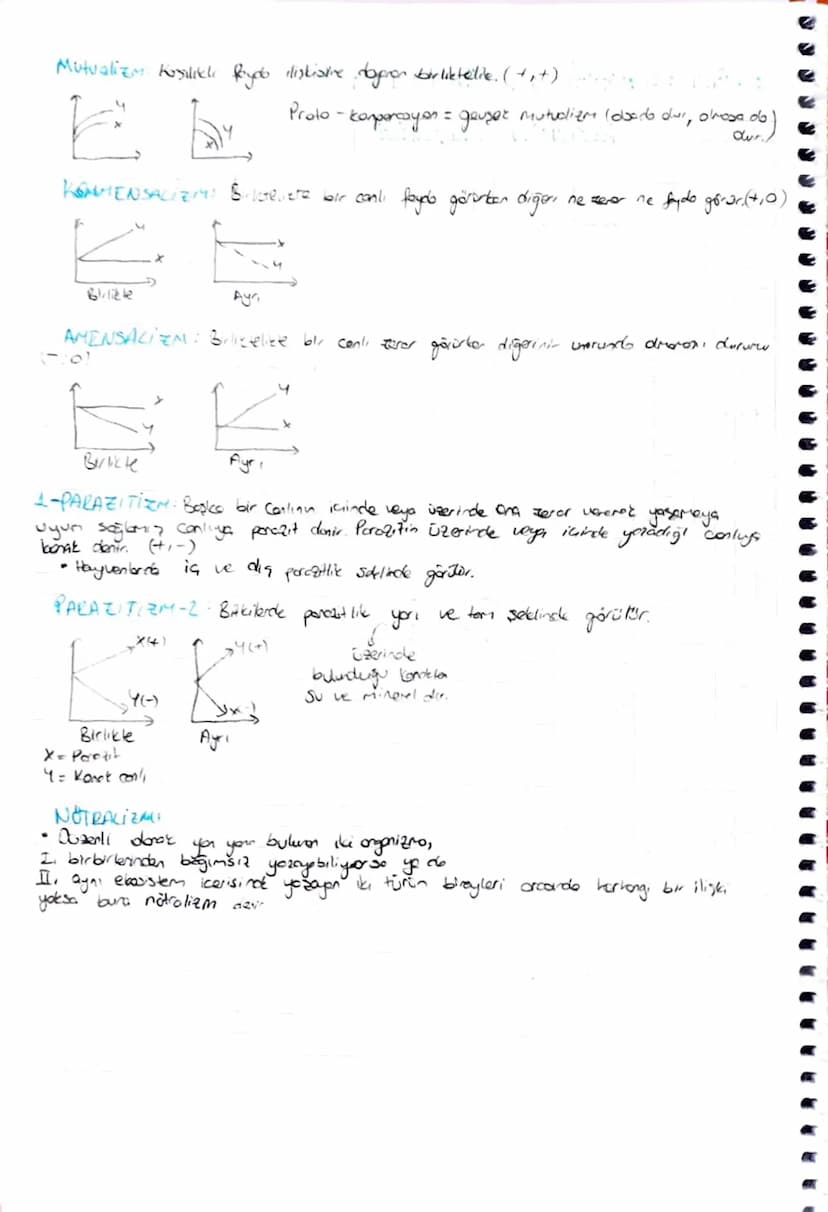 MUTUALİZM: Karşılıklı fayda ilişkisine dayanan birliktelik. (+,+)
Y
X
X Y
Proto-kooperasyon = gevşek mutualizm (olsa da olur, olmasa da
olur.)
KOMMENSALİZM: Birliktelikte bir canlı fayda görürken diğeri ne zarar ne fayda görür.(+,0)
Y
X
Birlikte
X
Y
Ayrı
AMENSALİZM: Birliktelikte bir canlı zarar görürken diğerinin umrunda olmaması durumu
(-,0)
X
Y
Birlikte
Y
X
Ayrı
1-PARAZİTİZM: Başka bir canlının içinde veya üzerinde ona zarar vererek yaşamaya
uyum sağlamış canlıya parazit denir. Parazitin üzerinde veya içinde yaşadığı canlıya
konak denir. (+,-)
• Hayvanlarda iç ve dış parazitlik şeklinde görülür.
PARAZİTİZM-2: Bitkilerde parazitlik yarı ve tam şeklinde görülür.
X(+)
Y(-)
Birlikte
Y(+)
X(-)
Ayrı
üzerinde
bulunduğu konaktan
su ve mineral alır.
X = Parazit
Y = Konak canlı
NÖTRALİZM:
• Düzenli olarak yan yana bulunan iki organizma,
I. birbirlerinden bağımsız yaşayabiliyorsa ya da
II. aynı ekosistem içerisinde yaşayan iki türün bireyleri arasında herhangi bir ilişki
yoksa buna nötralizm denir